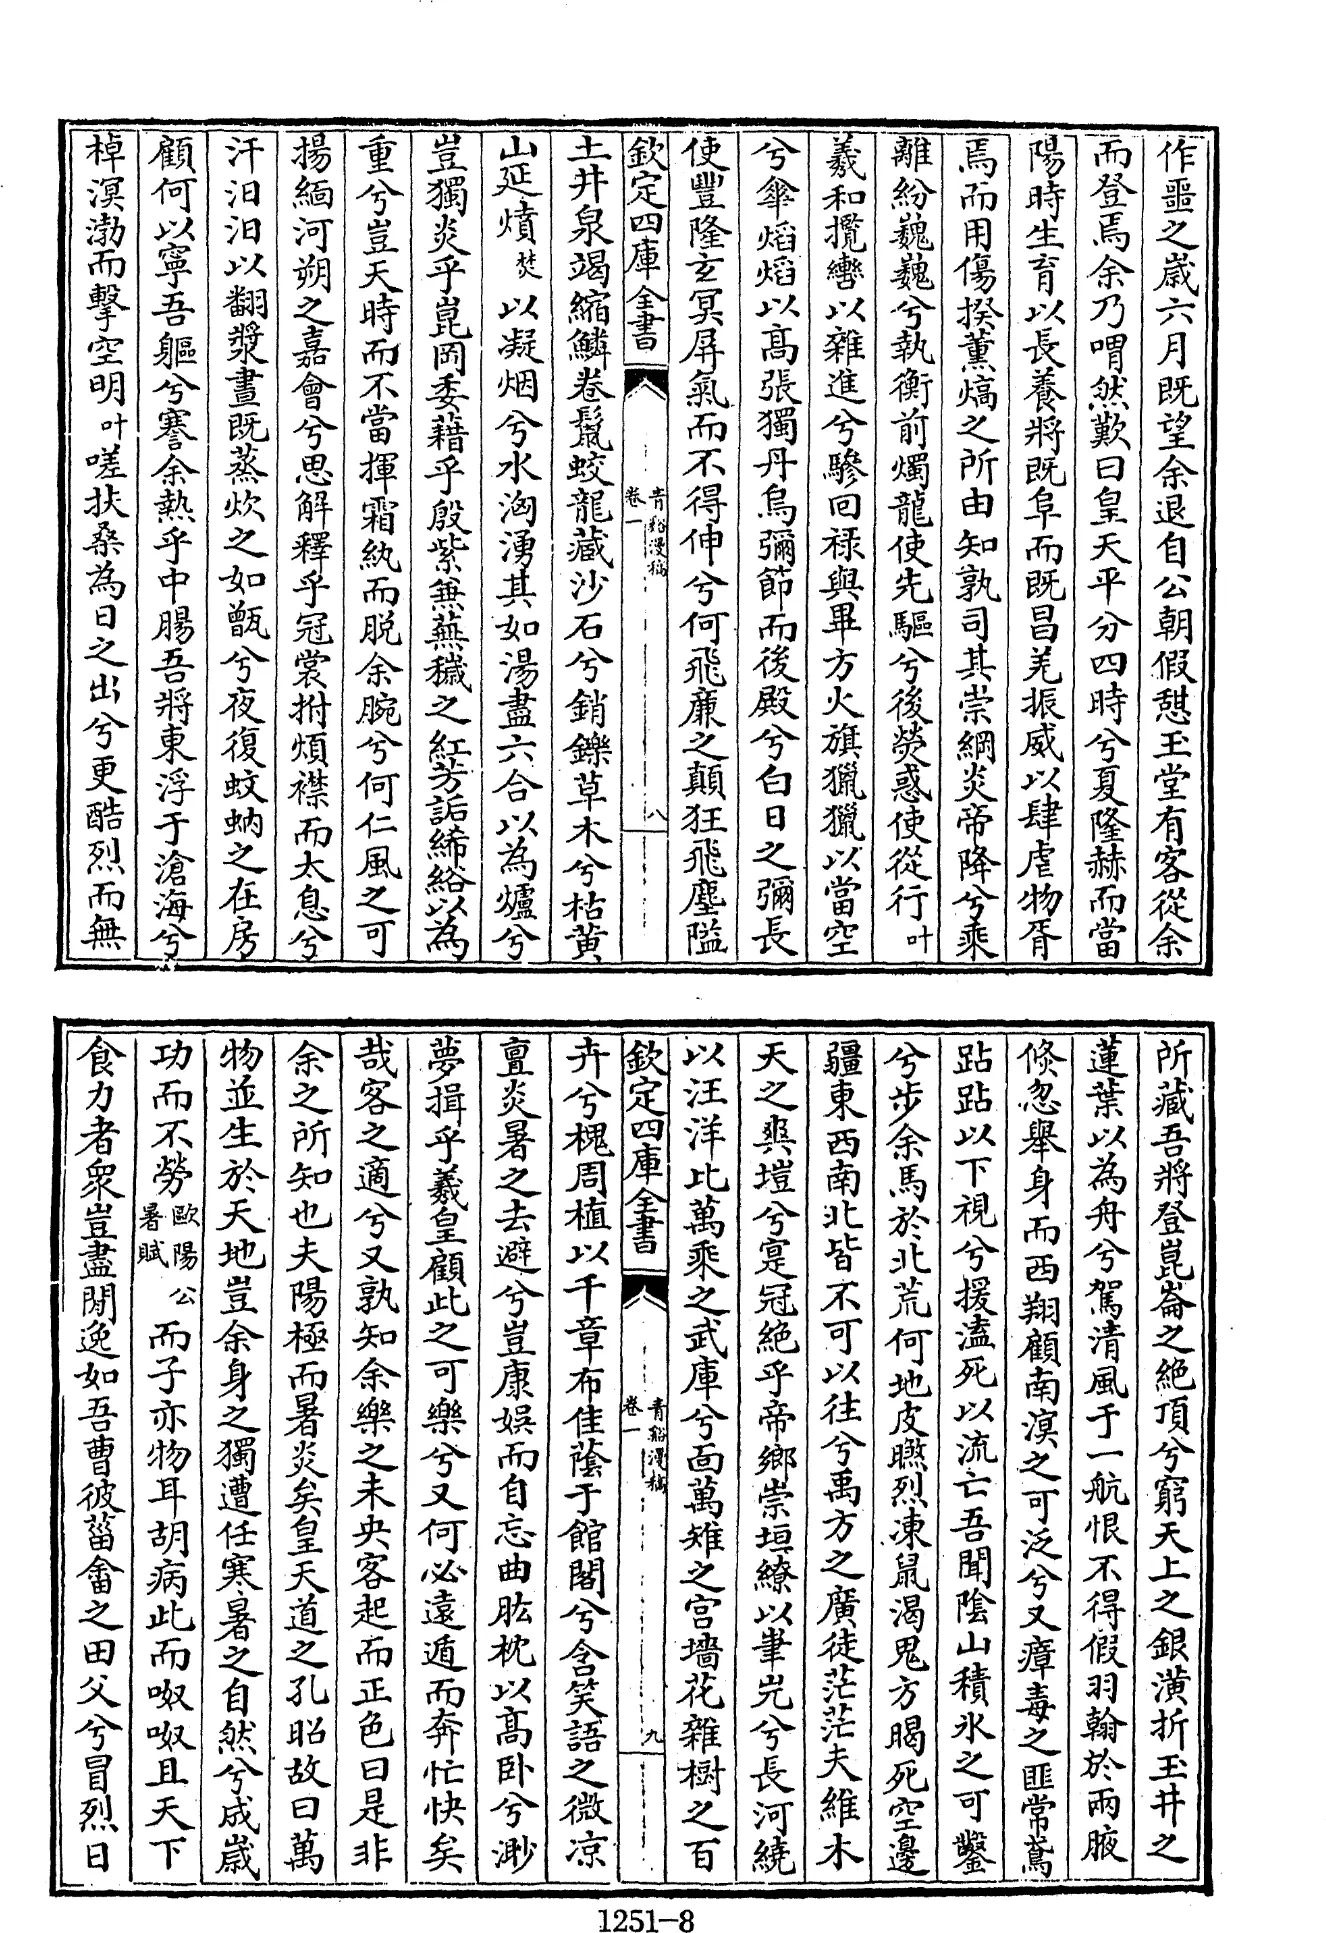 作噩之歲六月既望余退自公朝假憇玉堂有客從余
而登焉余乃喟然歎曰皇天平分四時兮夏隆赫而當
陽時生育以長養將既阜而既昌羌振威以肆虐物胥
焉而用傷揆薰熇之所由知孰司其崇綱炎帝降兮乘
離紛巍巍兮執衡前燭龍使先驅兮後熒惑使從行叶
羲和攬轡以雜進兮驂回祿與畢方火旗獵獵以當空
兮傘熖熖以高張獨丹烏彌節而後殿兮白日之彌長
使豐隆玄冥屏氣而不得伸兮何飛廉之顛狂飛塵隘
欽定四庫全書
青谿漫稿
卷一
八
土井泉竭縮鱗卷鬛蛟龍藏沙石兮銷鑠草木兮枯黄
山延燌焚以凝烟兮水洶湧其如湯盡六合以為爐兮
豈獨炎乎崑岡委藉乎殷紫兼蕪穢之紅芳詬絺綌以為
重兮豈天時而不當揮霜紈而脱余腕兮何仁風之可
揚緬河朔之嘉會兮思解釋乎冠裳拊煩襟而太息兮
汗汩汩以翻漿晝既蒸炊之如甑兮夜復蚊蚋之在房
顧何以寧吾軀兮謇余熱乎中腸吾將東浮于滄海兮
棹溟渤而擊空明叶嗟扶桑為日之出兮更酷烈而無
所藏吾將登崑崙之絶頂兮窮天上之銀潢折玉井之
蓮葉以為舟兮駕清風于一航恨不得假羽翰於兩腋
倐忽舉身而西翔顧南溟之可泛兮又瘴毒之匪常鳶
跕跕以下視兮援溘死以流亡吾聞陰山積氷之可鑿
兮步余馬於北荒何地皮㷫烈凍鼠渴鬼方暍死空邊
疆東西南北皆不可以往兮禹方之廣徒茫茫夫維木
天之爽塏兮寔冠絶乎帝鄉崇垣繚以聿光兮長河繞
以汪洋比萬乘之武庫兮面萬雉之宫墻花雜樹之百
欽定四庫全書
青谿漫稿
卷一
九
卉兮槐周植以千章布佳蔭于館閣兮含笑語之微凉
亶炎暑之去避兮豈康娱而自忘曲肱枕以高卧兮渺
夢揖乎羲皇顧此之可樂兮又何必遠遁而奔忙快矣
哉客之適兮又孰知余樂之未央客起而正色曰是非
余之所知也夫陽極而暑炎矣皇天道之孔昭故曰萬
物並生於天地豈余身之獨遭任寒暑之自然兮成歲
功而不勞歐陽公暑賦而子亦物耳胡病此而呶呶且天下
食力者衆豈盡閒逸如吾曹彼菑畬之田父兮冒烈日
1251-8